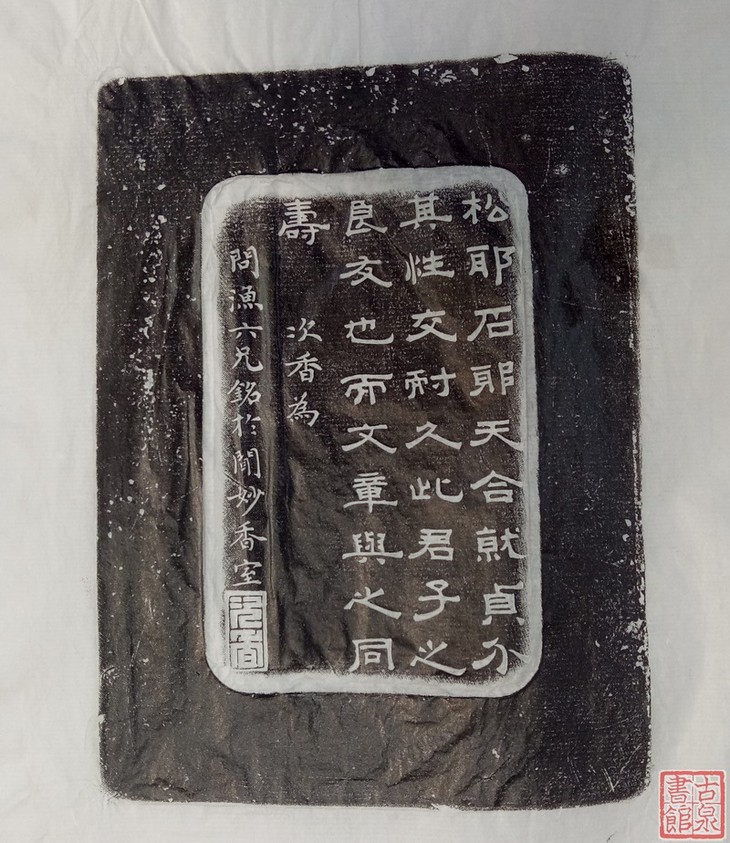 松耶石耶天合就貞介
其性交耐久此君子之
良友也而文章與之同
壽
次香為
問漁六兄銘於聞妙香室
古泉
書館